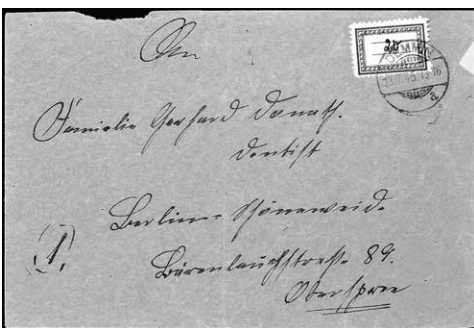 An
Familie Gerhard Donath.
Dentist
Berlin-Schöneweide.
(1)
Bärenlauchstraße 89.
Oberspree
20
DEMMIN